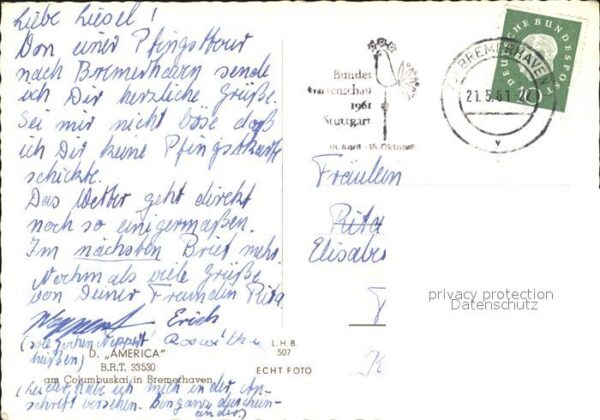 Liebe Liesel!
Von einer Pfingsttour
nach Bremerhaven sende
ich Dir herzliche Grüße.
Sei mir nicht böse daß
ich Dir keine Pfingstkarte
schickte.
Das Wetter geht direkt
noch so einigermaßen.
Im nächsten Brief mehr.
Nochmals viele Grüße
von Deiner Freundin Rita
Erich
(wie Jochen Neppert Roswitha
D. „AMERICA"
B.R.T. 33530
am Columbuskai in Bremerhaven
(Leider habe ich mich in der An-
schrift versehen. Bin ganz durchein-
ander)
L.H.B.
507
ECHT FOTO
Bundes
gartenschau
1961
Stuttgart
28. April - 15. Oktober
BREMERHAVEN
21.5.61
v
DEUTSCHE BUNDESPOST
Fräulein
Rita
Elisabe
privacy protection
Datenschutz